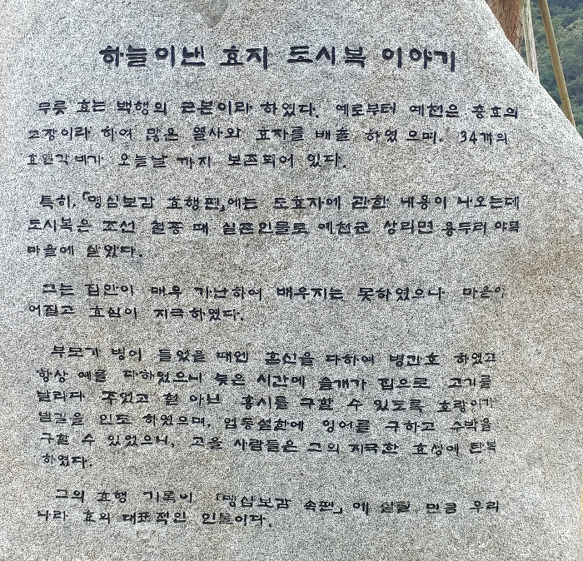 하늘이낸 효자 도시복 이야기
무릇 효는 백행의 근본이라 하였다. 예로부터 예천은 충효의
고장이라 하여 많은 열사와 효자를 배출 하였으며, 34개의
효열각비가 오늘날 까지 보존되어 있다.
특히, 「명심보감 효행편」에는 도효자에 관한 내용이 나오는데
도시복은 조선 철종 때 실존인물로 예천군 상리면 용두리 야목
마을에 살았다.
그는 집안이 매우 가난하여 배우지는 못하였으나 마음이
어질고 효심이 지극하였다.
부모가 병이 들었을 때엔 혼신을 다하여 병간호 하였고
항상 예를 다하였으니 늦은 시간에 솔개가 집으로 고기를
날라다 주었고 철 아닌 홍시를 구할 수 있도록 호랑이가
밤길을 인도 하였으며, 엄동설한에 잉어를 구하고 수박을
구할 수 있었으니, 고을 사람들은 그의 지극한 효성에 탄복
하였다.
그의 효행 기록이 「명심보감 속편」에 실릴 만큼 우리
나라 효의 대표적인 인물이다.